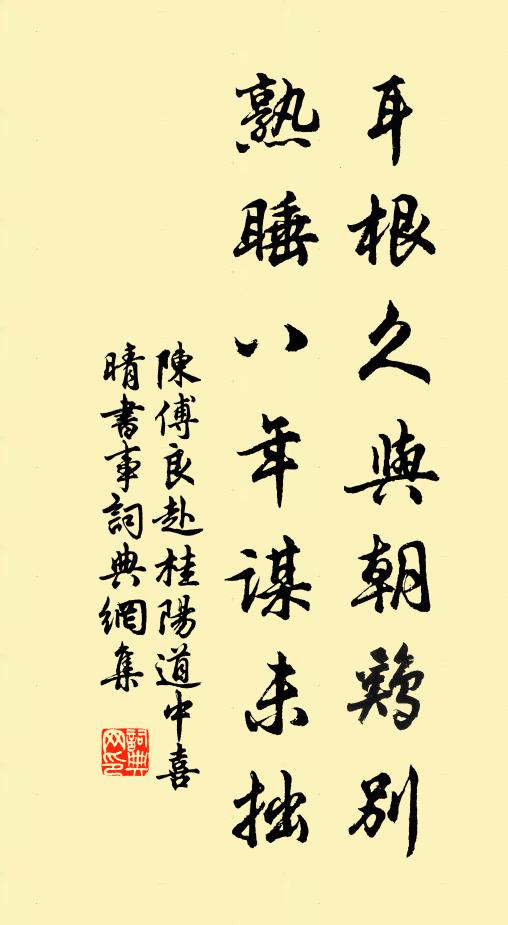 耳根久與朝鷄別
熟睡八年謀未拙
陳傅良赴桂陽道中喜
晴書事詞典網集
詞典
网印